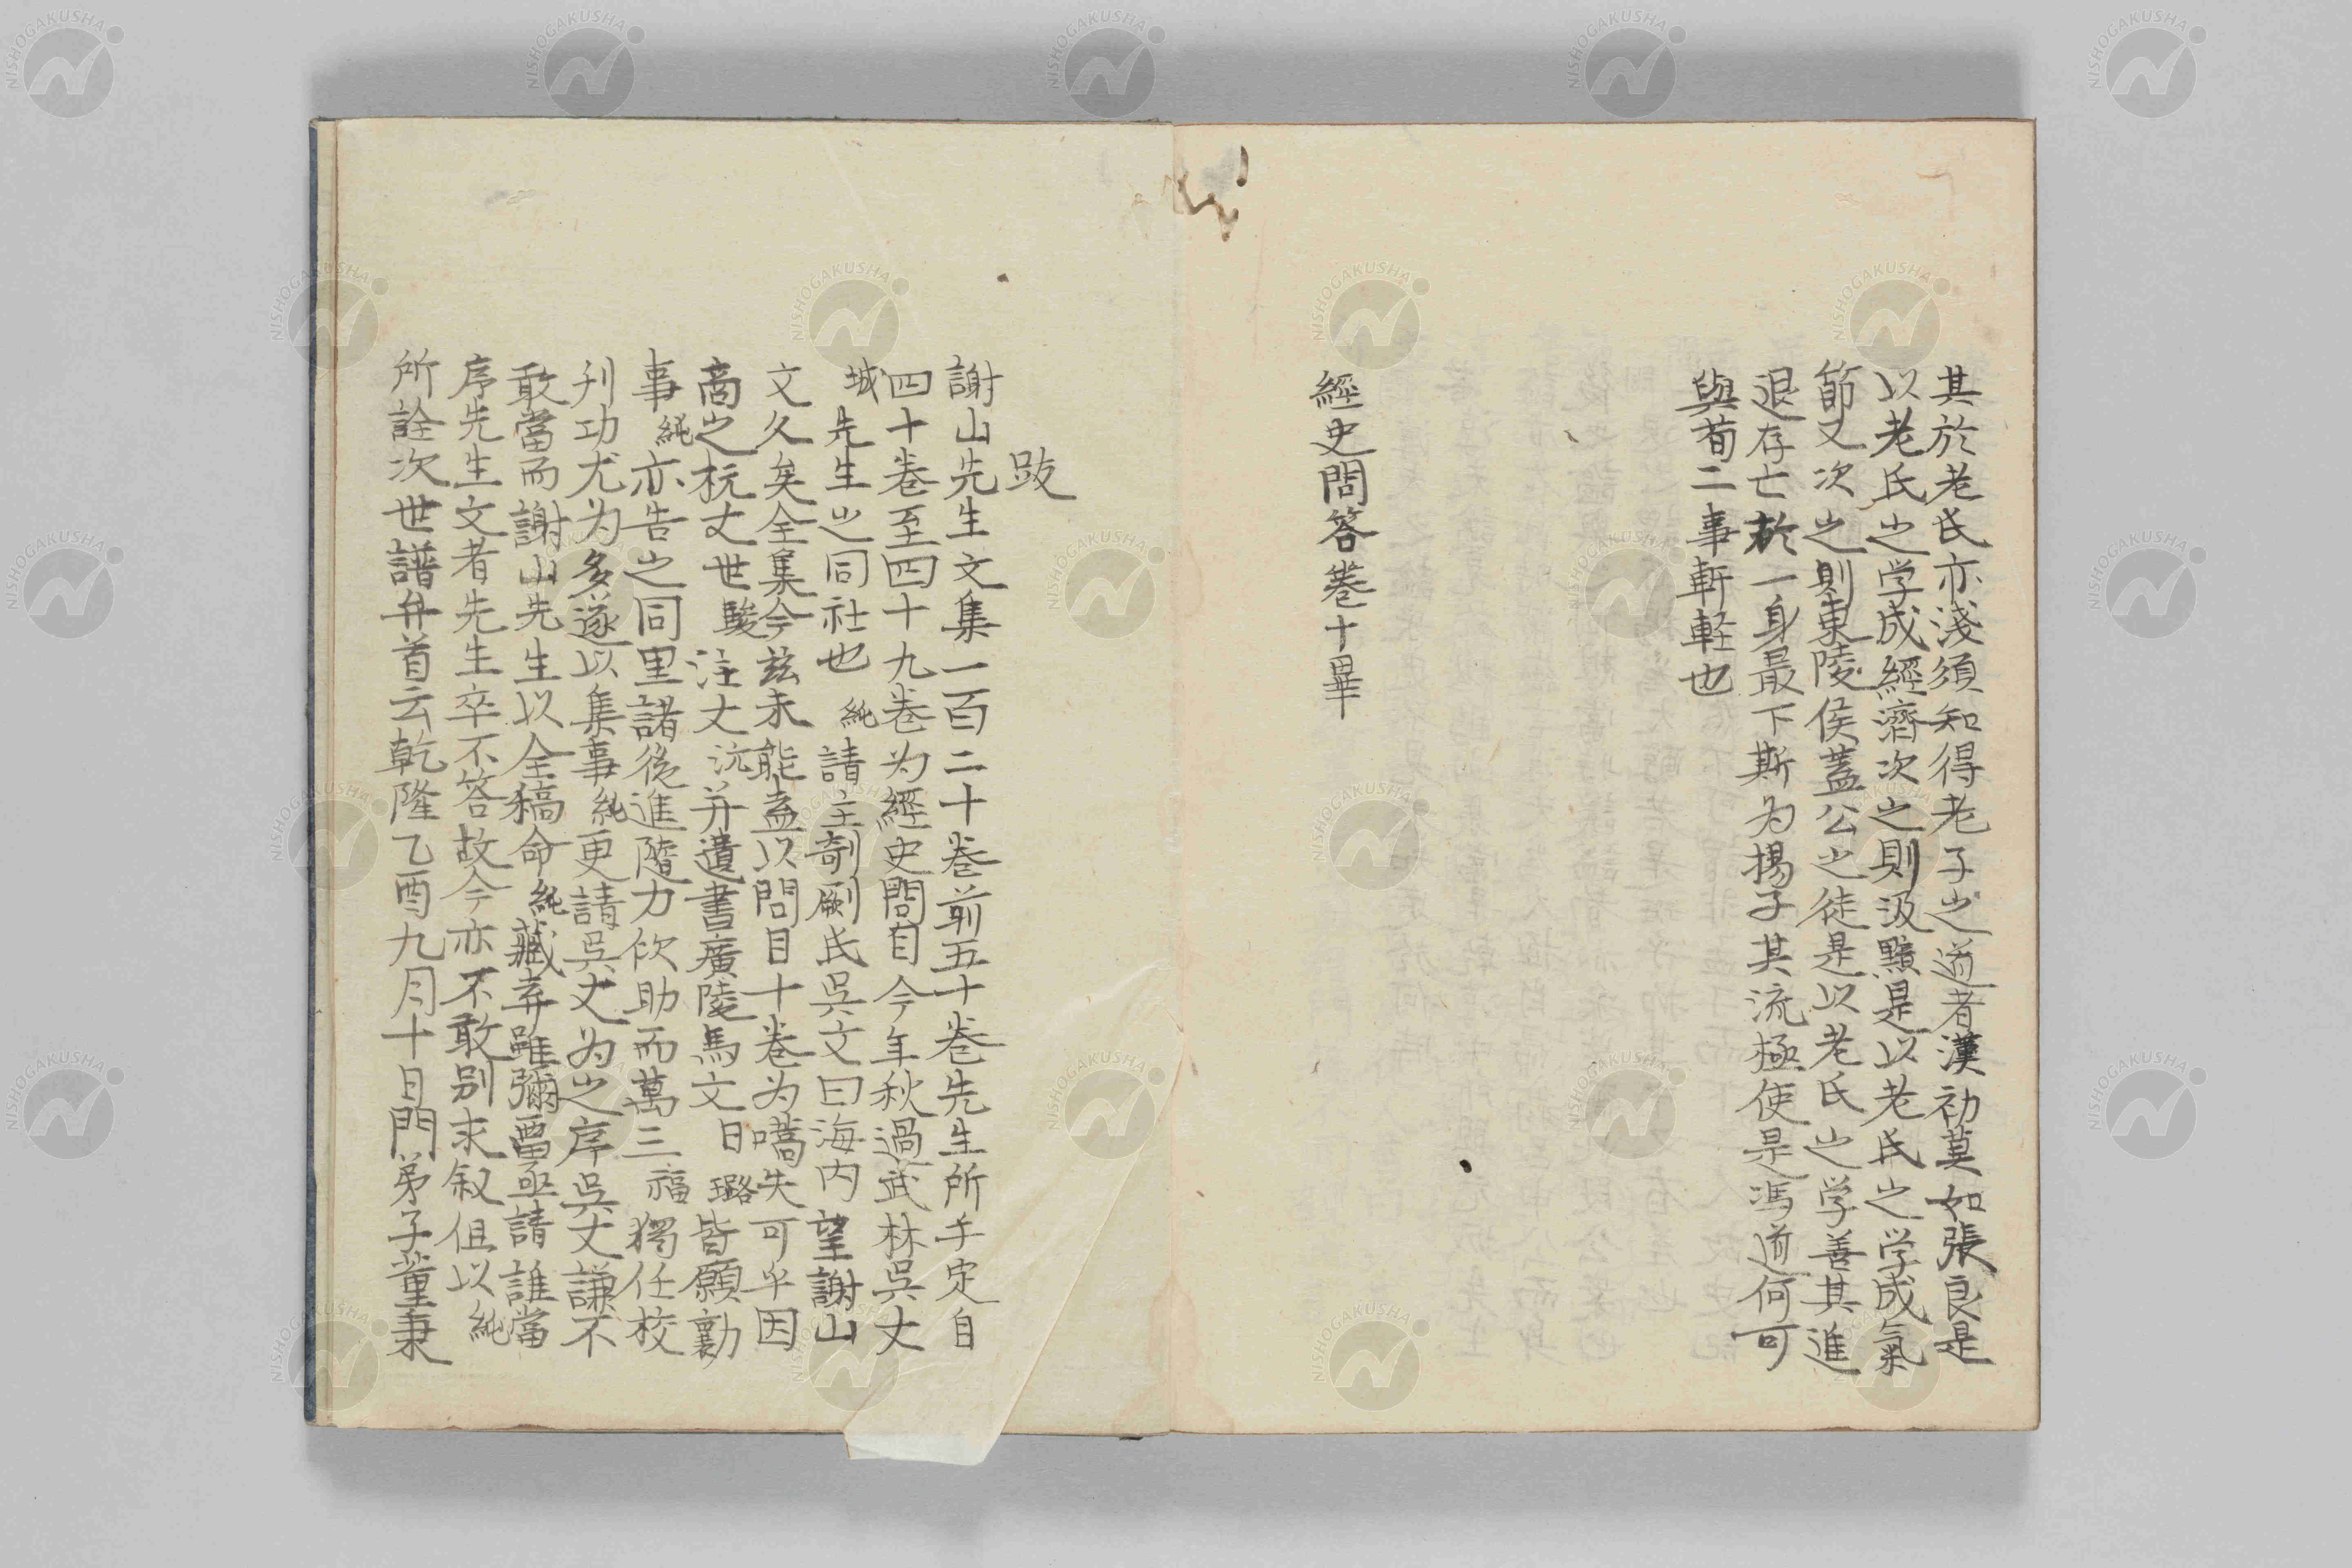 其於老氏亦淺須知得老子之道者漢初莫如張良是
以老氏之学成經濟次之則汲黯是以老氏之学成氣
節又次之則東陵侯蓋公之徒是以老氏之学善其進
退存亡於一身最下斯为揚子其流極使是馮道何可
與荀二事軒軽也
經史問答巻十畢
跋
謝山先生文集一百二十巻前五十巻先生所手定自
四十巻至四十九巻为經史問目今年秋過武林呉丈
城先生之同社也純請主剞劂氏呉文曰海内望謝山
文久矣全集今兹未能盍以問目十巻为嚆矢可乎因
商之杭丈世駿汪丈沆并遺書廣陵馬文曰璐皆願勷
事純亦告之同里諸後進隨力佽助而萬三福獨任校
刋功尤为多遂以集事純更請呉丈为之序呉丈謙不
敢當而謝山先生以全稿命純藏弆雖彌畱亟請誰當
序先生文者先生卒不答故今亦不敢别求叙但以純
所詮次世譜弁首云乾隆乙酉九月十日門弟子董秉
NISHOGAKUSHA